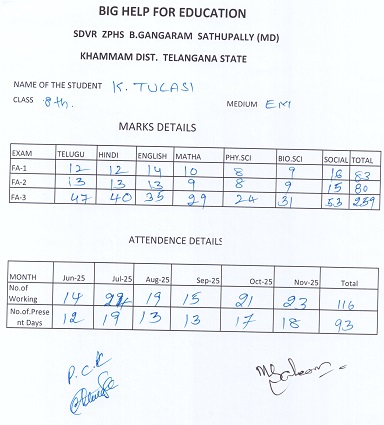 BIG HELP FOR EDUCATION
SDVR ZPHS B.GANGARAM SATHUPALLY (MD)
KHAMMAM DIST. TELANGANA STATE
NAME OF THE STUDENT K. TULASI
CLASS 8th. MEDIUM EM
MARKS DETAILS
EXAM TELUGU HINDI ENGLISH MATHA PHY.SCI BIO.SCI SOCIAL TOTAL
FA-1 12 12 14 10 8 9 16 83
FA-2 13 13 13 9 8 9 15 80
FA-3 47 40 35 29 24 31 53 259
ATTENDENCE DETAILS
MONTH Jun-25 Jul-25 Aug-25 Sep-25 Oct-25 Nov-25 Total
No.of
Working 14 24 19 15 21 23 116
No.of.Prese
nt Days 12 19 13 13 17 18 93
P.C.R